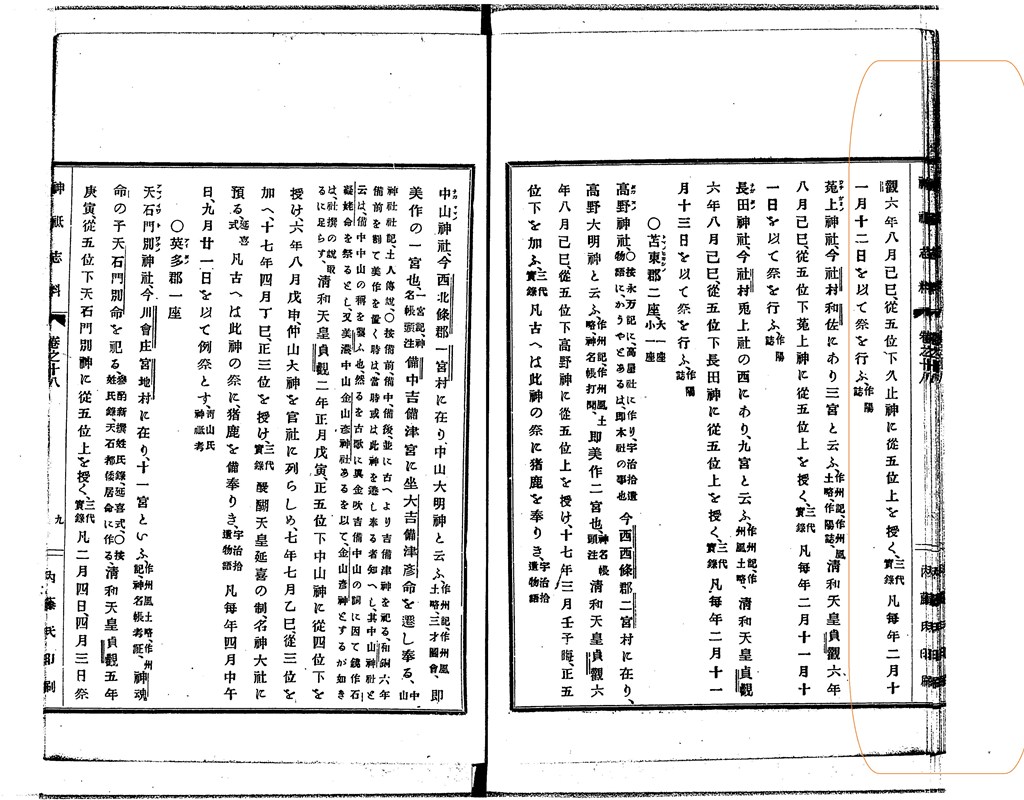 觀六年八月己巳、從五位下久止神に從五位上を授く、三代實錄 凡每年二月十
一月十二日を以て祭を行ふ、作陽誌
菟上神社、今社村和佐にあり三宮と云ふ、作州記、作州風土略、作陽誌、淸和天皇貞觀六年
八月己巳、從五位下菟上神に從五位上を授く、三代實錄 凡每年二月十一月十
一日を以て祭を行ふ、作陽誌
長田神社、今社村兎上社の西にあり、九宮と云ふ、作州記、作州風土略、淸和天皇貞觀
六年八月己巳、從五位下長田神に從五位上を授く、三代實錄 凡每年二月十一
月十三日を以て祭を行ふ、作陽誌
〇苫東郡二座、大一座小一座
高野神社、〇按永万記に、高屋社に作り、宇治拾遺物語に、かうやとあるは、卽本社の事也 今西西條郡二宮村に在り、
高野大明神と云ふ、作州記、作州風土略、神名帳打聞、卽美作二宮也、神名帳頭注 淸和天皇貞觀六
年八月己巳、從五位下高野神に從五位上を授け、十七年三月壬子晦、正五
位下を加ふ、三代實錄 凡古へは此神の祭に猪鹿を奉りき、宇治拾遺物語
神祇志料
卷之十八
九
內藤氏印刷
中山神社、今西北條郡一宮村に在り、中山大明神と云ふ、作州記、作州風土略、三才圖會、卽
美作の一宮也、一宮記、神名帳頭注 備中吉備津宮に坐大吉備津彥命を遷し奉る、中山
神社社記、土人傳說〇按備前、備中備後、並に古へより吉備津神を祀る、和銅六年
備前を割て美作を置く時は、當時或は此神を遷し奉る者知へし、其中山神社と
云は、備中中山の稱を襲ふ也、然るを古歌に眞金吹吉備中山の詞に因て鏡作石
凝姥命を祭るとし、又美濃中山金山彥神社あるを以て、金山彥神とするが如き
は、社撰の說取るに足らす、淸和天皇貞觀二年正月戊寅、正五位下中山神に從四位下を
授け、六年八月戊申仲山大神を官社に列らしめ、七年七月乙巳從三位を
加へ、十七年四月丁巳、正三位を授け、三代實錄 醍醐天皇延喜の制、名神大社に
預る、延喜式 凡古へは此神の祭に猪鹿を備奉りき、宇治拾遺物語 凡每年四月中午
日、九月廿一日を以て例祭とす、河山氏神祇考
〇英多郡一座
天石門別神社、今川會庄宮地村に在り、十一宮といふ、作州風土略、作州記神名帳考証、神魂
命の子天石門別命を祀る、參酌新撰姓氏錄、延喜式、〇按姓氏錄、天石都倭居命に作る、淸和天皇貞觀五年
庚寅、從五位下天石門別神に從五位上を授く、三代實錄 凡二月四日四月三日祭